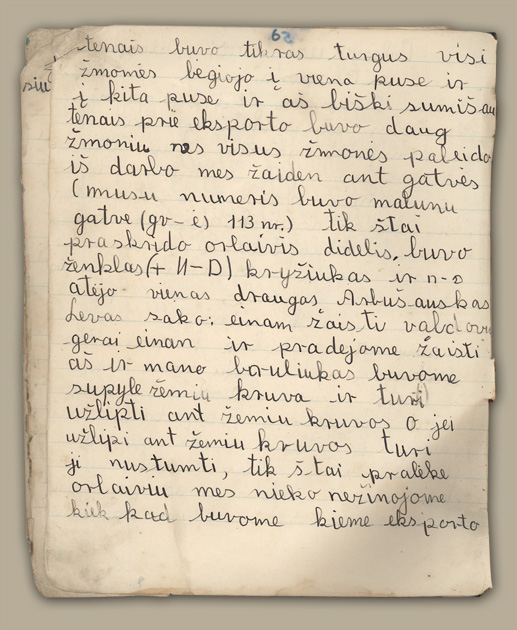 62
tenais buvo tikras turgus visi
žmonės bėgiojo į viena puse ir
į kita puse ir aš biški sumišau
tenais prie eksporto buvo daug
žmoniu nes visus žmonės paleido
iš darbo mes žaidėn ant gatvės
(musu numeris buvo malunu
gatve (gv-ė) 113 nr.) tik štai
praskrido orlaivis didelis, buvo
ženklas (+ kryžiukas ir
atėjo vienas draugas Arbušauskas
Levas sako: einam žaisti
gerai einan ir pradėjome žaisti
aš ir mano broliukas buvome
supylę žemiu kruva ir turi
užlipti ant žemiu kruvos o jei
užlipi ant žemiu kruvos turi
ji nustumti, tik štai pralėkė
orlaiviu mes nieko nežinojome
kiek kad buvome kieme eksporto